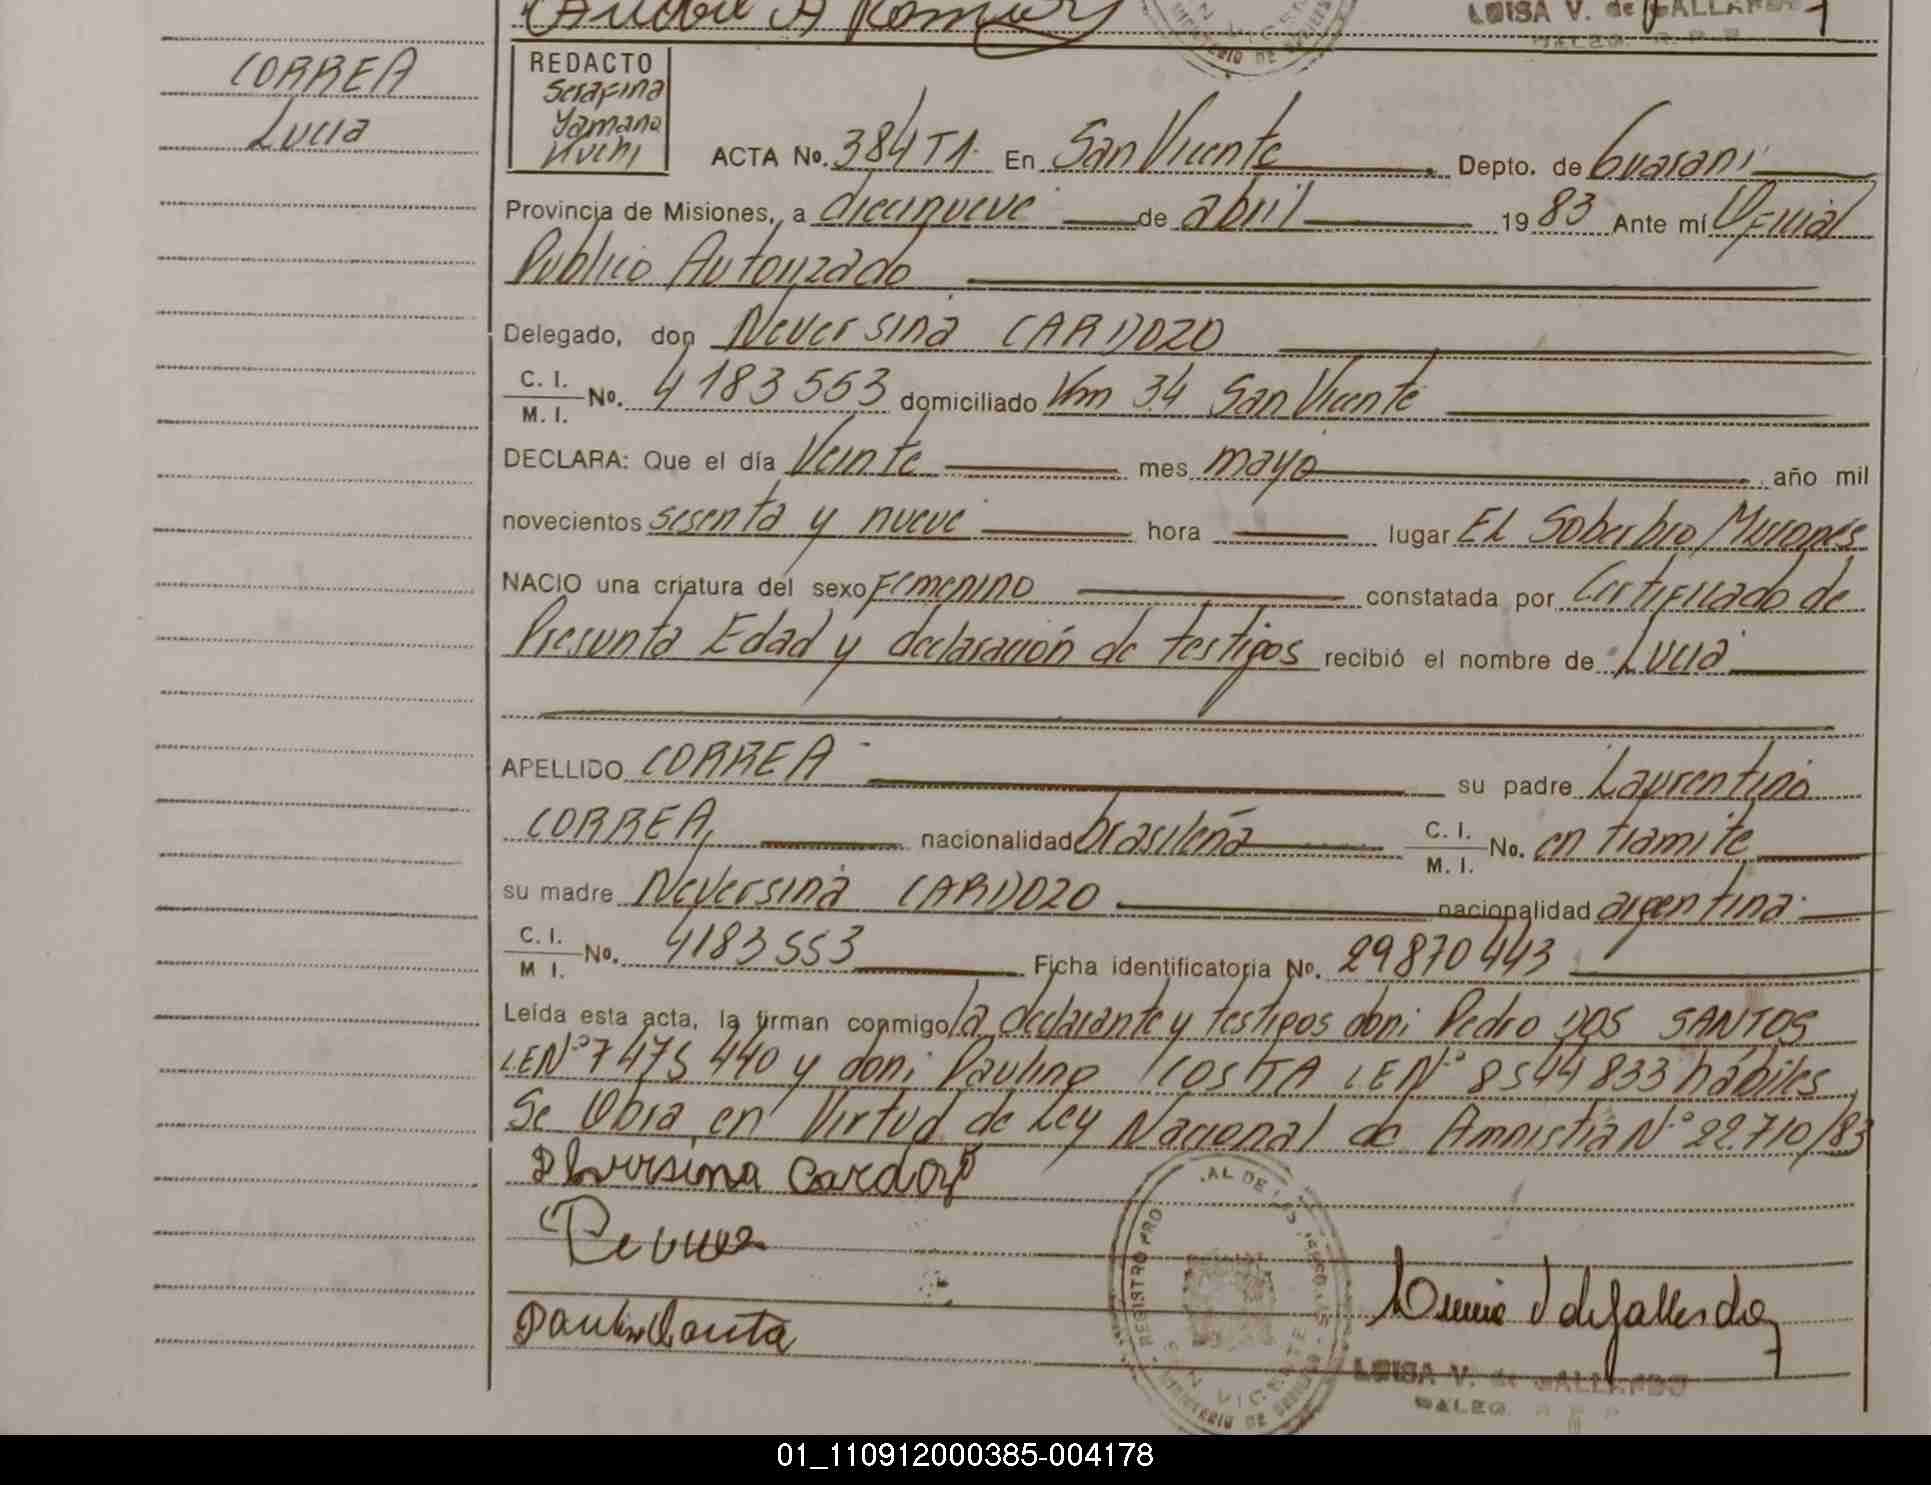 LUISA V. de GALLARDO
CORREA
Lucia
REDACTO
Serafina
Yamana
ACTA No. 384 T1. En San Vicente Depto. de Guarani
Provincia de Misiones, a diecinueve de abril 1983 Ante mí Oficial
Publico Autorizado
Delegado, don Neversina CARDOZO
C. I.
M. I. No. 4183553 domiciliado Km 34 San Vicente
DECLARA: Que el día Veinte mes mayo año mil
novecientos sesenta y nueve hora lugar EL Soberbio, Misiones
NACIO una criatura del sexo Femenino constatada por Certificado de
Presunta Edad y declaración de testigos recibió el nombre de Lucia
APELLIDO CORREA su padre Laurentino
CORREA, nacionalidad brasileña C. I.
M. I. No. en tramite
su madre Neversina CARDOZO nacionalidad argentina
C. I.
M I. No. 4183553 Ficha identificatoria No. 29870443
Leída esta acta, la firman conmigo la declarante y testigos don: Pedro DOS SANTOS
LE Nº 7475440 y don: Paulino COSTA LE Nº 8544833 hábiles
Se Obra en Virtud de Ley Nacional de Amnistia Nº 22.710/83
Neversina Cardozo
REGISTRO PRO AL DE LAS PERSONAS
SAN VICENTE
MINISTERIO DE GOBIERNO
LUISA V. de GALLARDO
DALEG. R P P
01_110912000385-004178